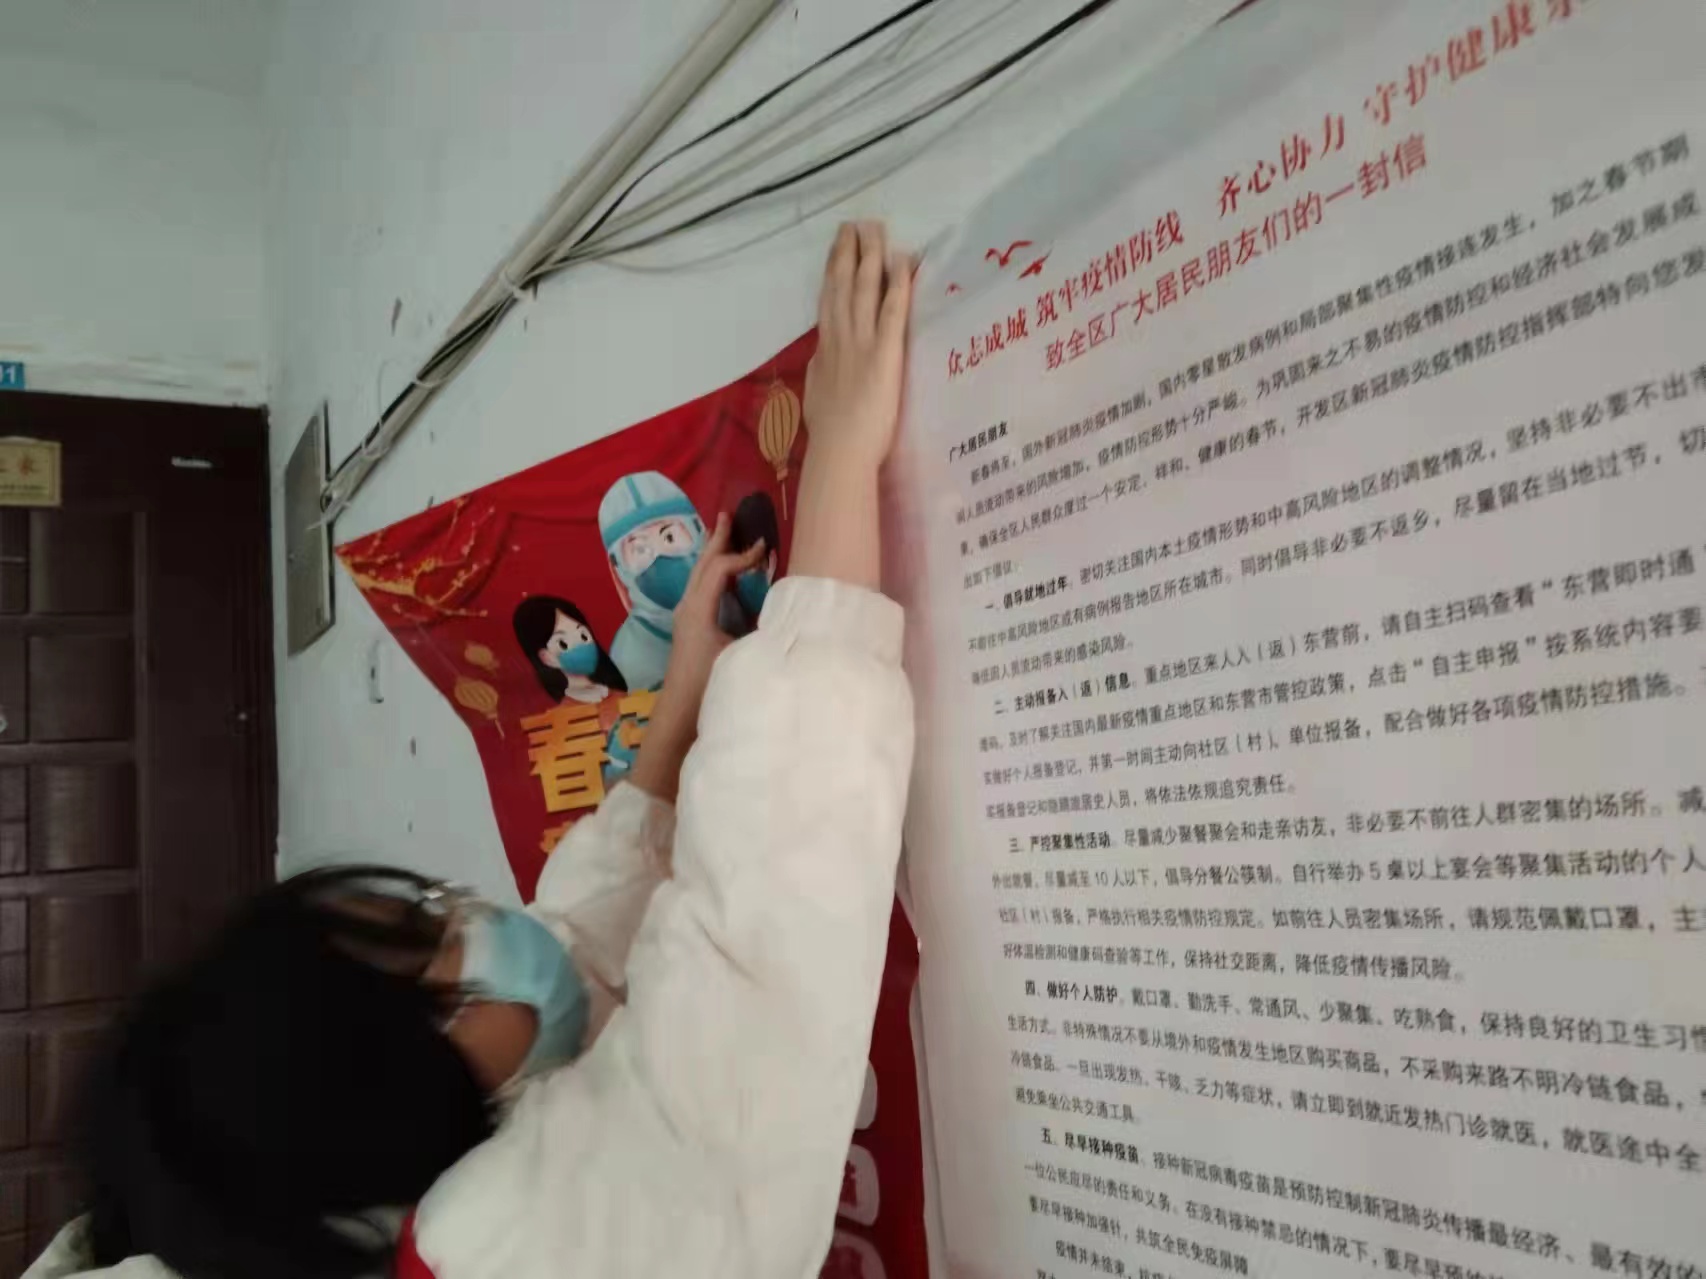 01
众志成城 筑牢疫情防线 齐心协力 守护健康
致全区广大居民朋友们的一封信
广大居民朋友
新春将至，国外新冠肺炎疫情加剧，国内零星散发病例和局部聚集性疫情接连发生，加之春节期
间人员流动带来的风险增加，疫情防控形势十分严峻。为巩固来之不易的疫情防控和经济社会发展成
果，确保全区人民群众度过一个安定、祥和、健康的春节，开发区新冠肺炎疫情防控指挥部特向您发
出如下倡议：
一、倡导就地过年。密切关注国内本土疫情形势和中高风险地区的调整情况，坚持非必要不出市
不前往中高风险地区或有病例报告地区所在城市。同时倡导非必要不返乡，尽量留在当地过节，切
降低因人员流动带来的感染风险。
二、主动报备入（返）信息。重点地区来人入（返）东营前，请自主扫码查看“东营即时通
港码，及时了解关注国内最新疫情重点地区和东营市管控政策，点击“自主申报”按系统内容要
实做好个人报备登记，并第一时间主动向社区（村）、单位报备，配合做好各项疫情防控措施。
实报备登记和隐瞒旅居史人员，将依法依规追究责任。
三、严控聚集性活动。尽量减少聚餐聚会和走亲访友，非必要不前往人群密集的场所。减
外出就餐，尽量减至10人以下，倡导分餐公筷制。自行举办5桌以上宴会等聚集活动的个人
社区（村）报备，严格执行相关疫情防控规定。如前往人员密集场所，请规范佩戴口罩，主
好体温检测和健康码查验等工作，保持社交距离，降低疫情传播风险。
四、做好个人防护。戴口罩、勤洗手、常通风、少聚集、吃熟食，保持良好的卫生习惯
生活方式。非特殊情况不要从境外和疫情发生地区购买商品，不采购来路不明冷链食品，
冷链食品。一旦出现发热、干咳、乏力等症状，请立即到就近发热门诊就医，就医途中全
避免乘坐公共交通工具。
五、尽早接种疫苗。接种新冠病毒疫苗是预防控制新冠肺炎传播最经济、最有效的
一位公民应尽的责任和义务。在没有接种禁忌的情况下，要尽早
要尽早接种加强针，共筑全民免疫屏障
疫情并未结束，
春